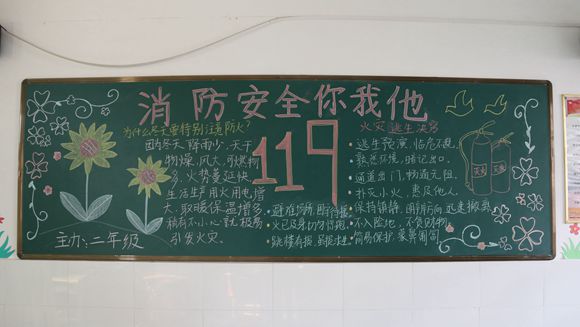 消防安全你我他
为什么冬天要特别注意防火?
因为冬天降雨少,天干
物燥,风大,可燃物
多,火势蔓延快
生活生产用火用电增
大,取暖保温增多
稍有不小心就极易
引发火灾。
主办:二年级
119
火灾逃生决窍
逃生预演,临危不乱
熟悉环境,暗记出口,
通道出口,畅通无阻,
扑灭小火,惠及他人,
保持镇静,明辨方向,迅速撤离
不入险地,不贪财物
简易保护,蒙鼻匍匐
避难场所,固守待援
火已及身,切勿惊跑
跳楼有术,虽损求生
灭火
灭火